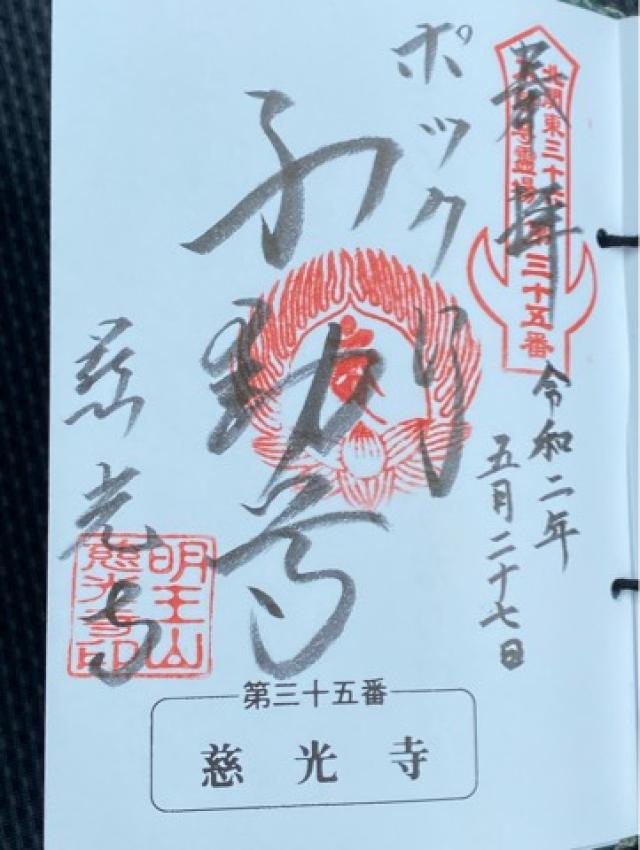 奉拝
北関東三十六
不動尊霊場
第三十五番
令和二年
五月二十七日
ポックリ
不動尊
慈光寺
明王山
慈光寺印
第三十五番
慈光寺